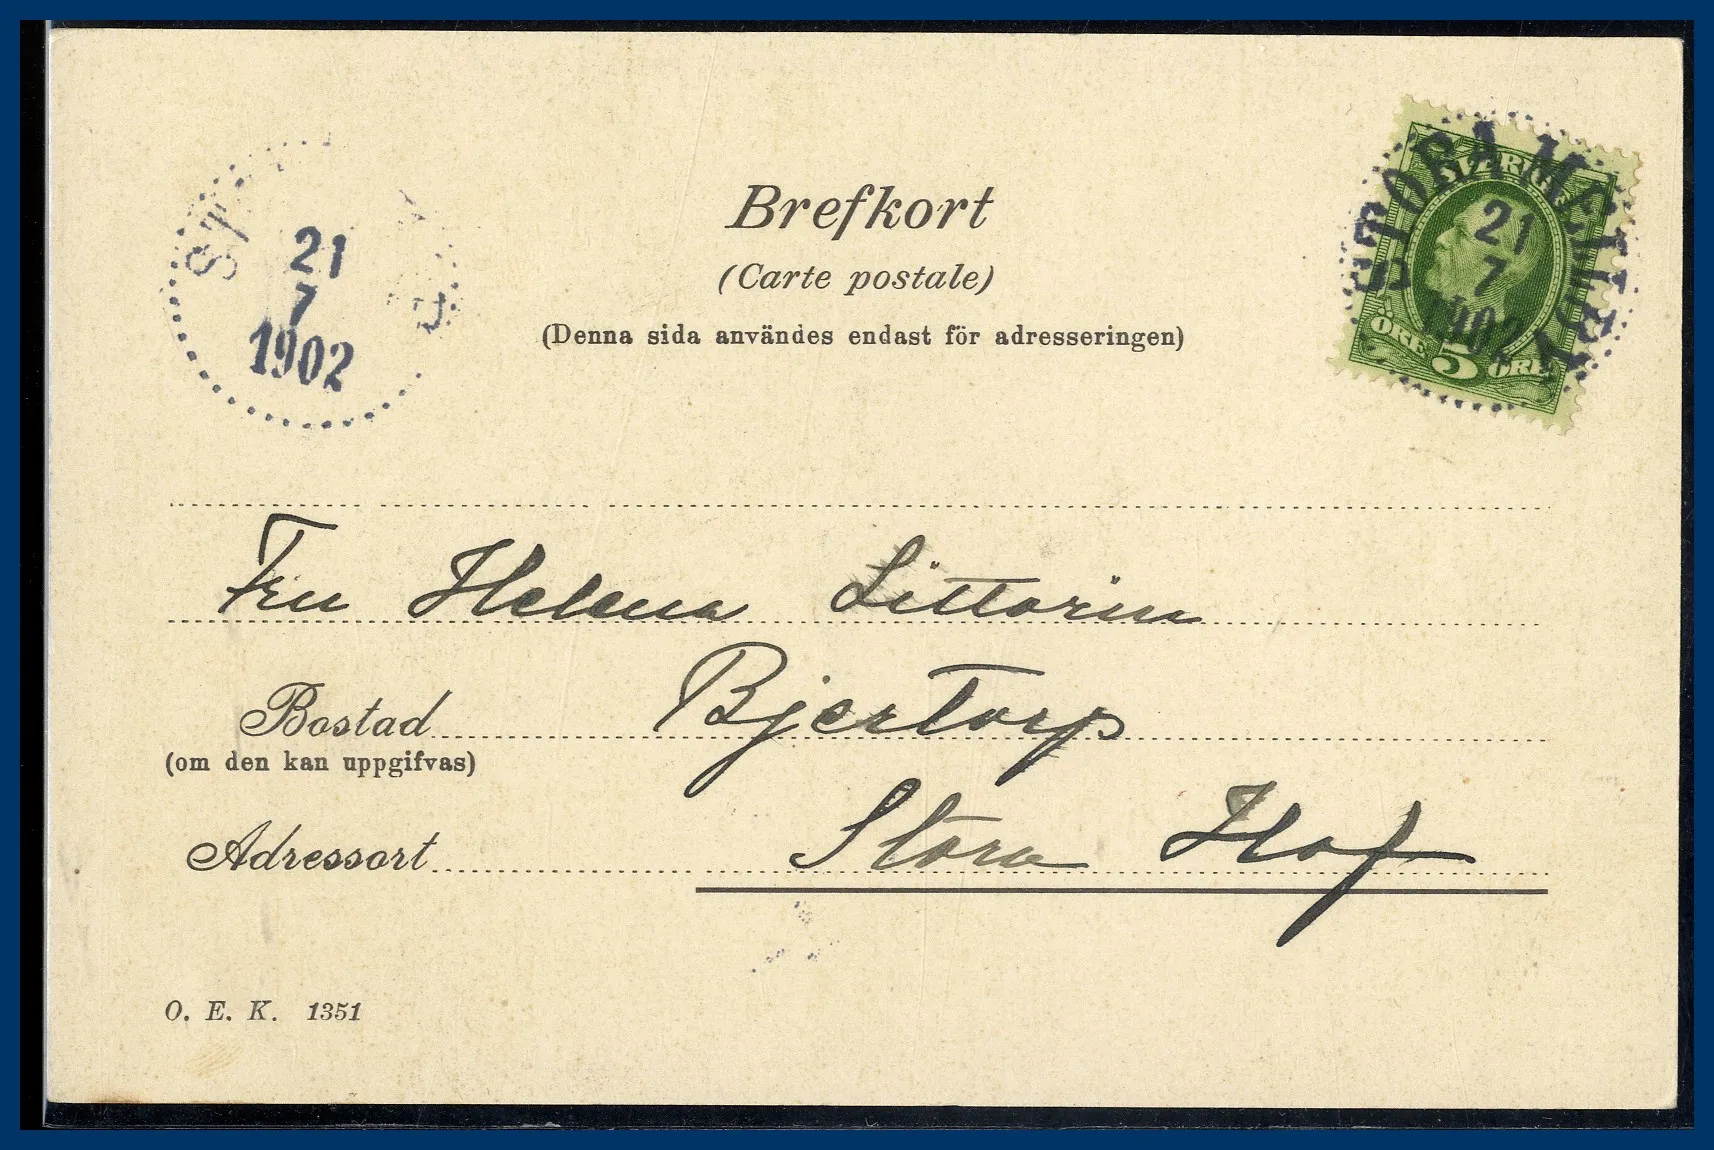 Brefkort
(Carte postale)
(Denna sida användes endast för adresseringen)
21
7
1902
STORA MELLBY
21
7
1902
SVERIGE
ÖRE 5 ÖRE
Fru Helena Littorin
Bostad Bjertorp
(om den kan uppgifvas)
Adressort Stora Hof
O. E. K. 1351